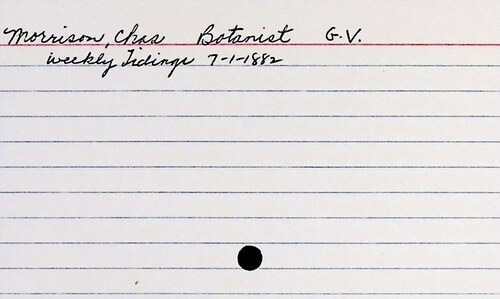 Morrison, Chas Botanist G.V.
Weekly Tidings 7-1-1882